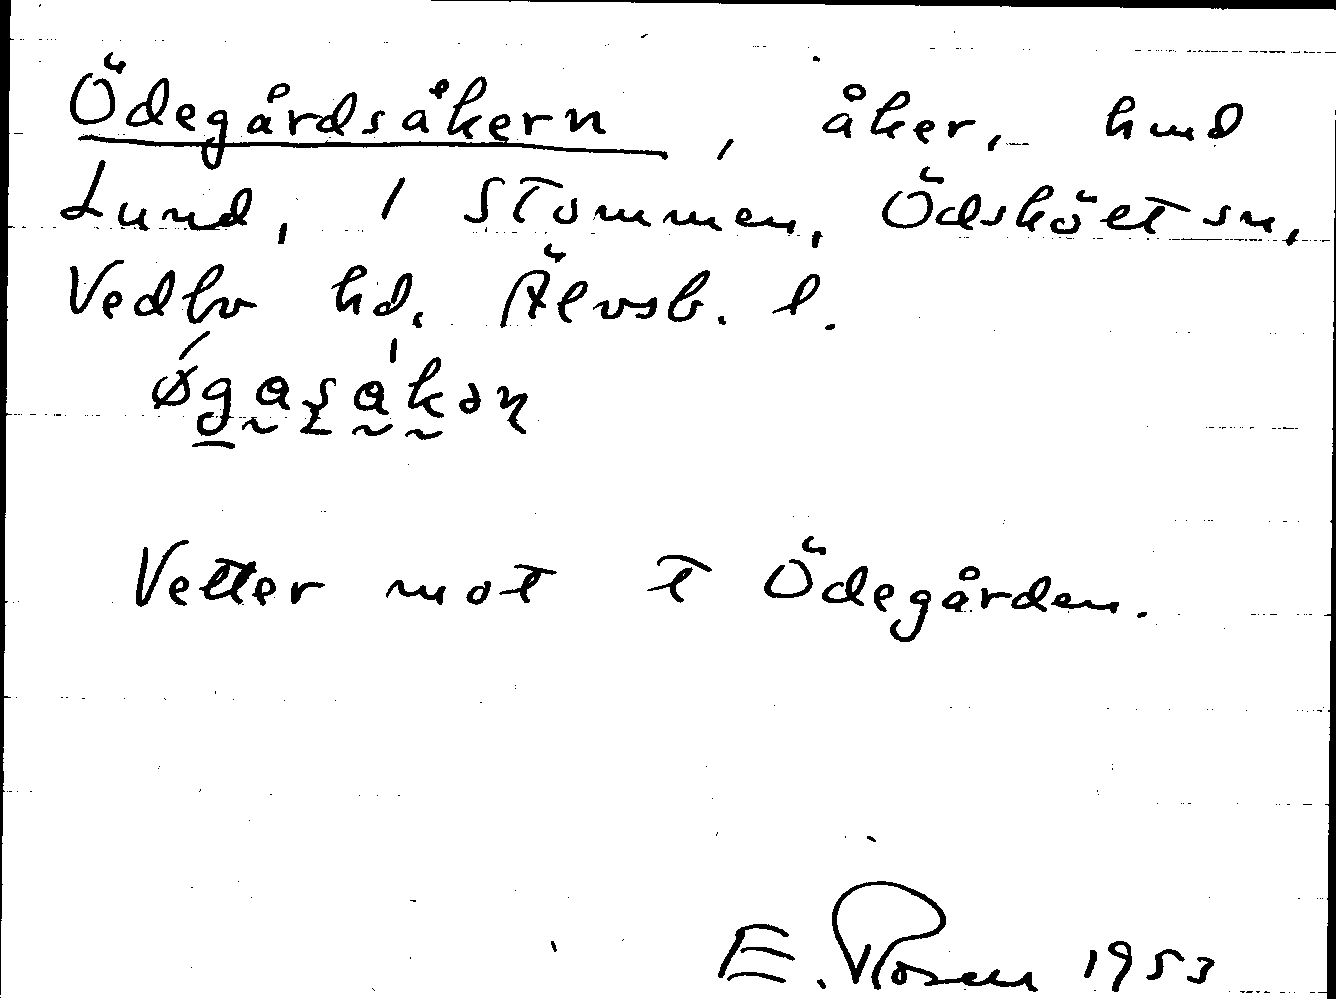 Ödegårdsåkern, åker, hmd
Lund, 1 Stommen, Ödskölt sn,
Vedbo hd, Älvsb. l.
Vetter mot t Ödegården.
E. Rosen 1953